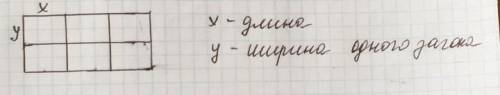 x
y
x - длина
y - ширина одного загона